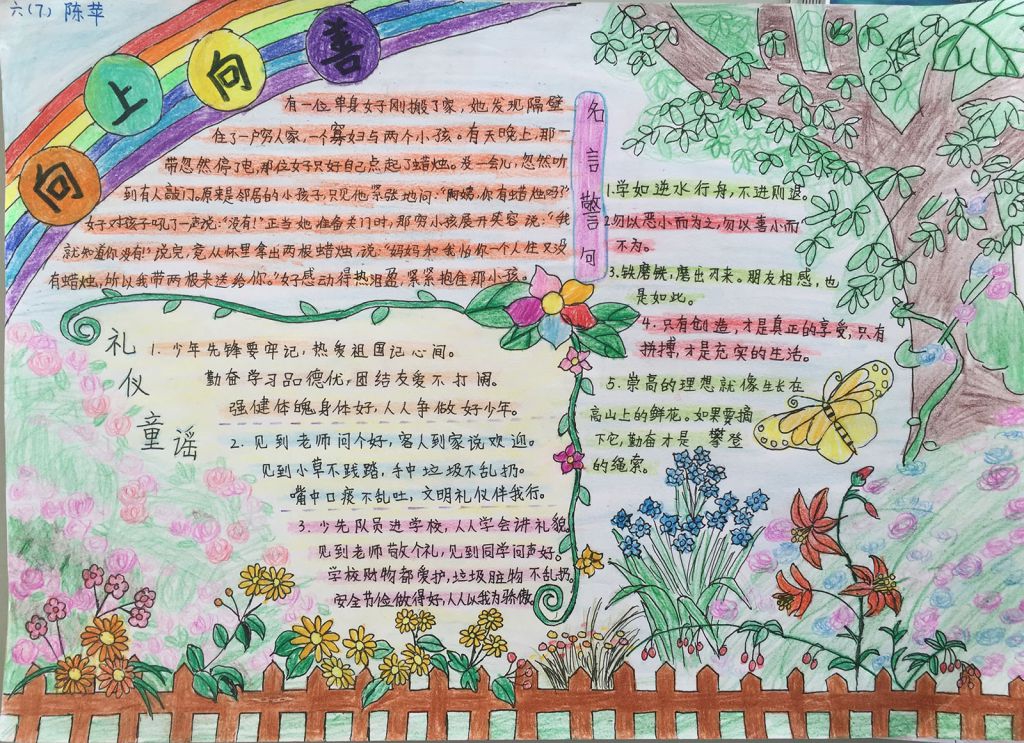 六(7) 陈苹
向上向善
有一位单身女子刚搬了家，她发现隔壁
住了一户穷人家，一个寡妇与两个小孩。有天晚上，那一
带忽然停了电，那位女子只好自己点起了蜡烛。没一会儿，忽然听
到有人敲门。原来是邻居的小孩子，只见他紧张地问："阿姨，你有蜡烛吗？"
女子对孩子吼了一声说："没有！"正当她准备关门时，那穷小孩展开笑容说："我
就知道你没有！"说完，竟从怀里拿出两根蜡烛，说："妈妈和我怕你一个人住又没
有蜡烛，所以我带两根来送给你。"女子感动得热泪盈，紧紧抱住那小孩。
名言警句
1.学如逆水行舟，不进则退。
2.勿以恶小而为之，勿以善小而
不为。
3.铁磨铁，磨出刃来。朋友相感，也
是如此。
4.只有创造，才是真正的享受，只有
拼搏，才是充实的生活。
5.崇高的理想就像生长在
高山上的鲜花。如果要摘
下它，勤奋才是攀登
的绳索。
礼仪童谣
1.少年先锋要牢记，热爱祖国记心间。
勤奋学习品德优，团结友爱不打闹。
强健体魄身体好，人人争做好少年。
2.见到老师问个好，客人到家说欢迎。
见到小草不践踏，手中垃圾不乱扔。
嘴中口痰不乱吐，文明礼仪伴我行。
3.少先队员进学校，人人学会讲礼貌
见到老师敬个礼，见到同学问声好。
学校财物都爱护，垃圾脏物不乱扔。
安全节俭做得好，人人以我为骄傲